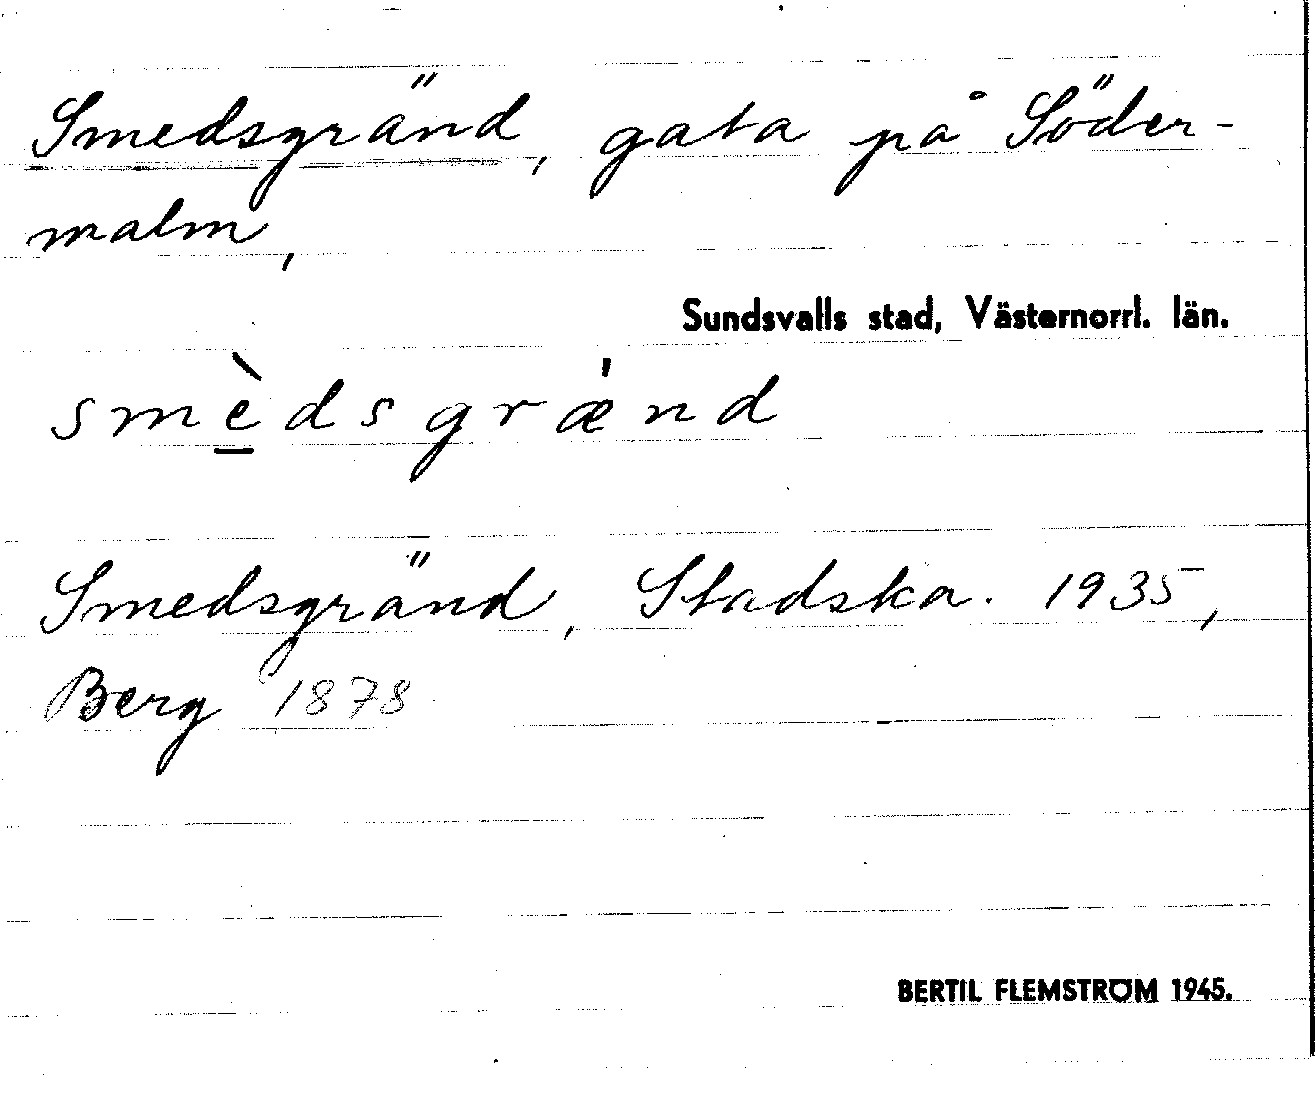 Smedsgränd, gata på Söder-
malm,
Sundsvalls stad, Västernorrl. län.
smè̲dsgrǽnd
Smedsgränd, Stadska. 1935,
Berg 1878
BERTIL FLEMSTRÖM 1945.